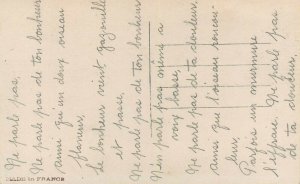 Ne parle pas,
Ne parle pas de ton bonheur
ainsi qu'un doux oiseau
flaneur,
Le bonheur vient gazouille
et passe,
Ne parle pas de ton bonheur
N'en parle pas même à
voix basse,
Ne parle pas de ta douleur,
ainsi que l'oiseau
Parfois un murmure
l'effraie. Ne parle pas
de ta douleur,
MADE in FRANCE